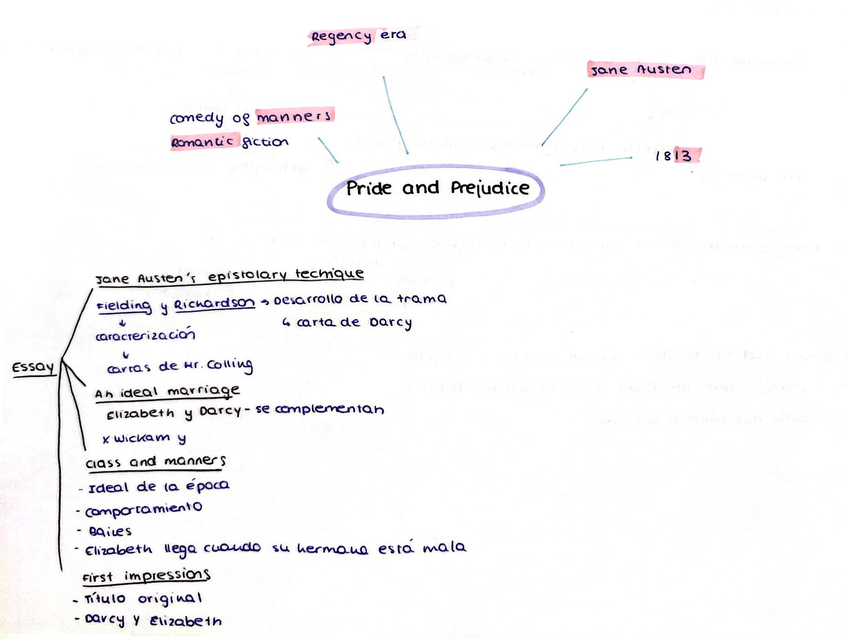 Regency era
Jane Austen
comedy of manners
Romantic fiction
1813
Pride and Prejudice
Jane Austen's epistolary technique
Fielding y Richardson → Desarrollo de la trama
↓ ↳ carta de Darcy
caracterización
↓
cartas de Mr. Colling
Essay
An ideal marriage
Elizabeth y Darcy - se complementan
x Wickam y
Class and manners
- Ideal de la época
- comportamiento
- Bailes
- Elizabeth llega cuando su hermana está mala
First impressions
- Título original
- Darcy y Elizabeth